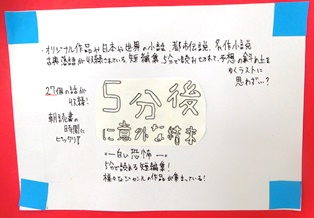 ・オリジナル作品や日本や世界の小説 都市伝説、名作小説
古典落語が収録されている短編集 5分で読みせてくれて、予想の斜め上を
いくラストに
思わず…?
27個の話が
収録!
朝読書の
時間に
ピッタリ
5分後
に意外な結末
白い恐怖
5分で読める短編集!
様々なジャンルの作品が集まっている!